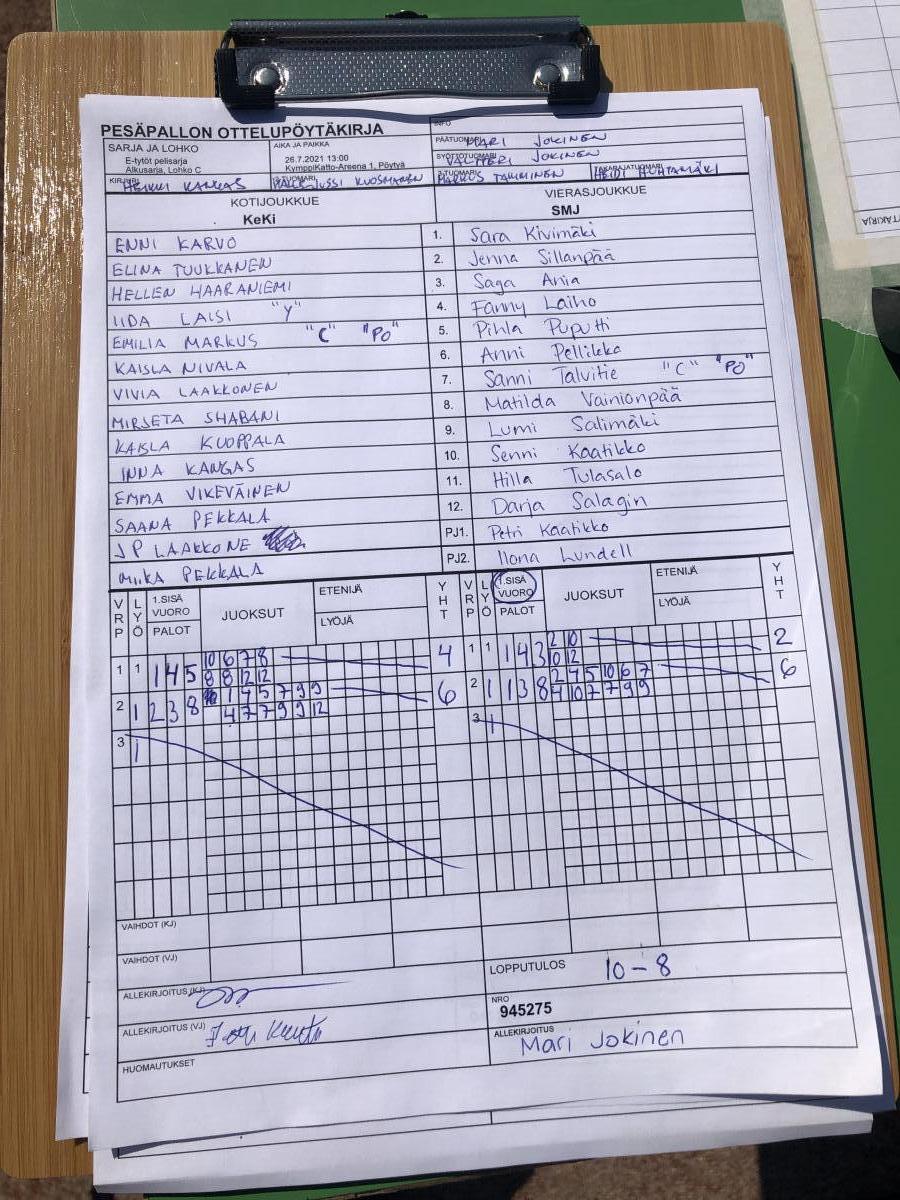 PESÄPALLON OTTELUPÖYTÄKIRJA
INFO
SARJA JA LOHKO
E-tytöt pelisarja
Alkusarja, Lohko C
AIKA JA PAIKKA
26.7.2021 13:00
KymppiKatto-Areena 1, Pöytyä
PÄÄTUOMARI MARI JOKINEN
SYÖTTÖTUOMARI VALTTERI JOKINEN
KIRJURI HEIKKI KANGAS
JUSSI KUOSMANEN
MARKUS TAMMINEN
TAKARAJATUOMARI HEIDI HUHTAMÄKI
KOTIJOUKKUE
KeKi
VIERASJOUKKUE
SMJ
ENNI KARVO 1. Sara Kivimäki
ELINA TUUKKANEN 2. Jenna Sillanpää
HELLEN HAARANIEMI 3. Saga Ania
IIDA LAISI "Y" 4. Fanny Laiho
EMILIA MARKUS "C" "PO" 5. Pihla Puputti
KAISLA NIVALA 6. Anni Pellikko
VIVIA LAAKKONEN 7. Sanni Talvitie "C" "PO"
MIRSETA SHABANI 8. Matilda Vainionpää
KAISLA KUOPPALA 9. Lumi Salimäki
INNA KANGAS 10. Senni Kaatikko
EMMA VIKEVÄINEN 11. Hilla Tulasalo
SAANA PEKKALA 12. Darja Salagin
JP LAAKKONE PJ1. Petri Kaatikko
MIIKA PEKKALA PJ2. Ilona Lundell
VRP LYÖ 1.SISÄ VUORO PALOT JUOKSUT ETENIJÄ LYÖJÄ YHT VRP LYÖ 1.SISÄ VUORO PALOT JUOKSUT ETENIJÄ LYÖJÄ YHT
1 1 1 4 5 10 6 7 8 4 1 1 1 4 3 2 10 2
8 8 12 12 10 12
2 1 2 3 8 1 4 5 7 9 9 6 2 1 1 3 8 2 4 5 10 6 7 6
4 7 7 9 9 12 4 10 7 7 9 9
3 1 3 1
VAIHDOT (KJ)
VAIHDOT (VJ)
ALLEKIRJOITUS (KJ)
LOPPUTULOS 10-8
ALLEKIRJOITUS (VJ)
NRO
945275
HUOMAUTUKSET
ALLEKIRJOITUS
Mari Jokinen